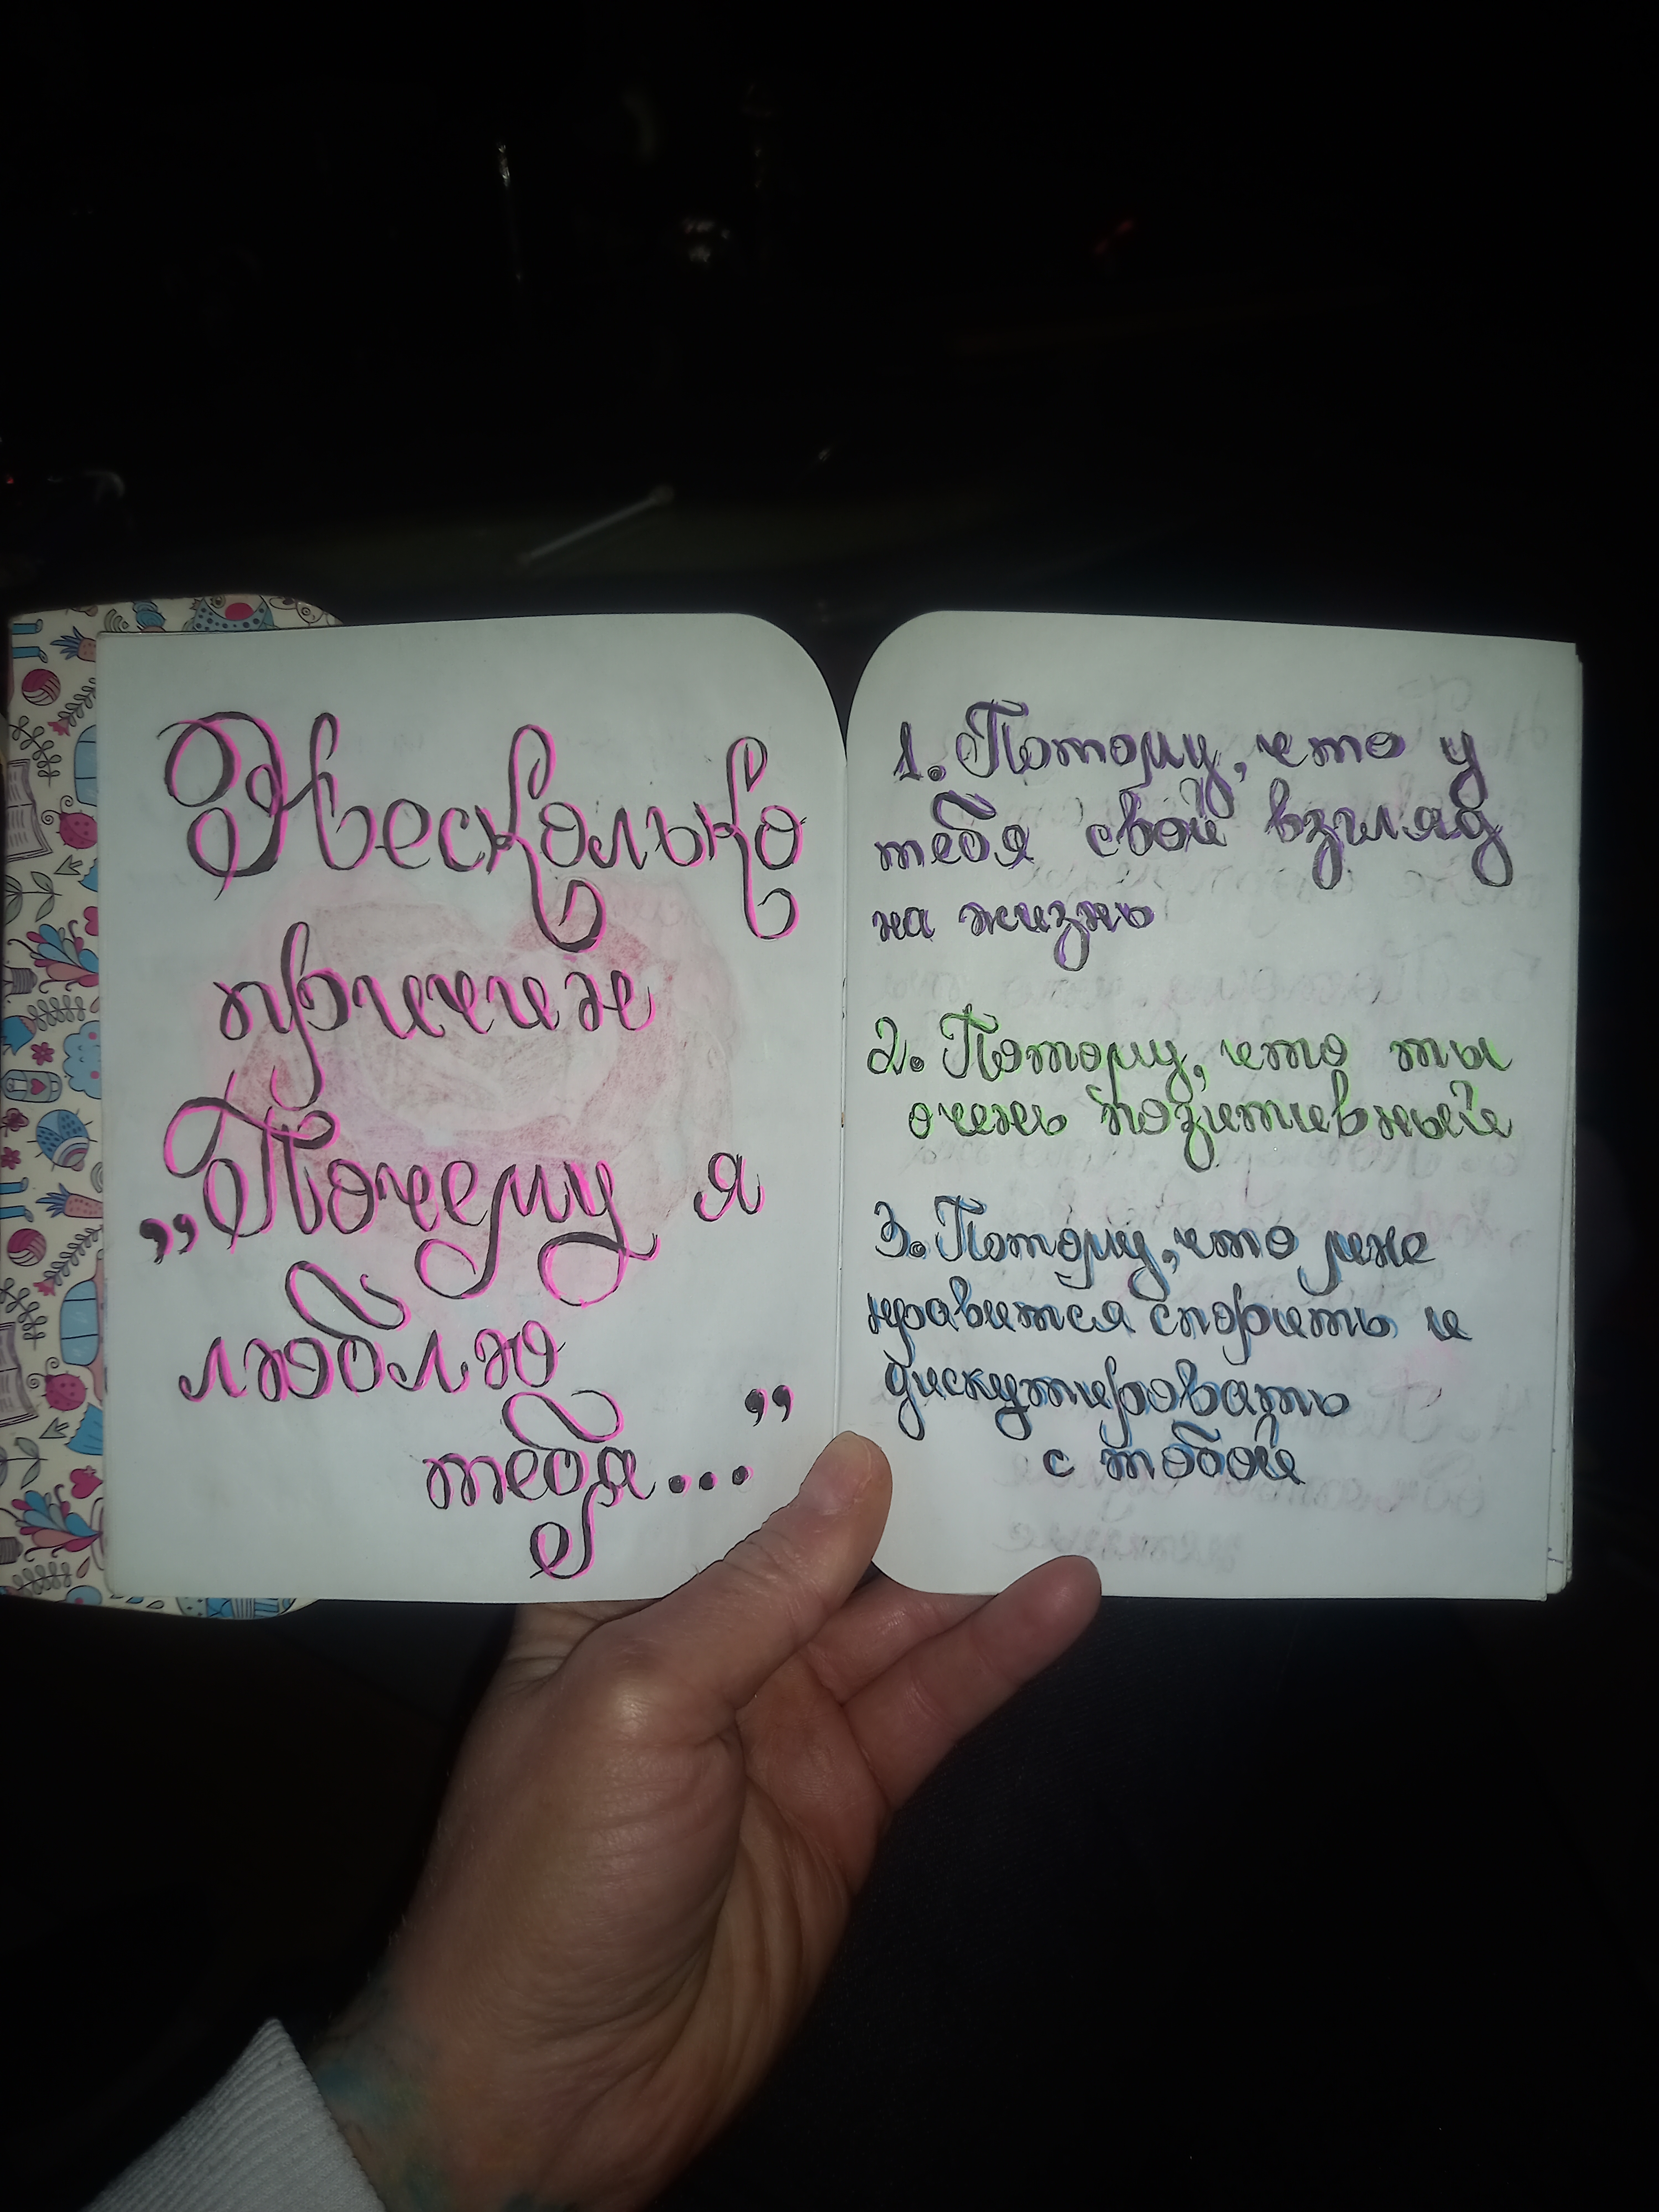 Несколько
причин
„Почему я
люблю
тебя...”
1. Потому, что у
тебя свой взгляд
на жизнь
2. Потому, что ты
очень позитивный
3. Потому, что мне
нравится спорить и
дискутировать
с тобой